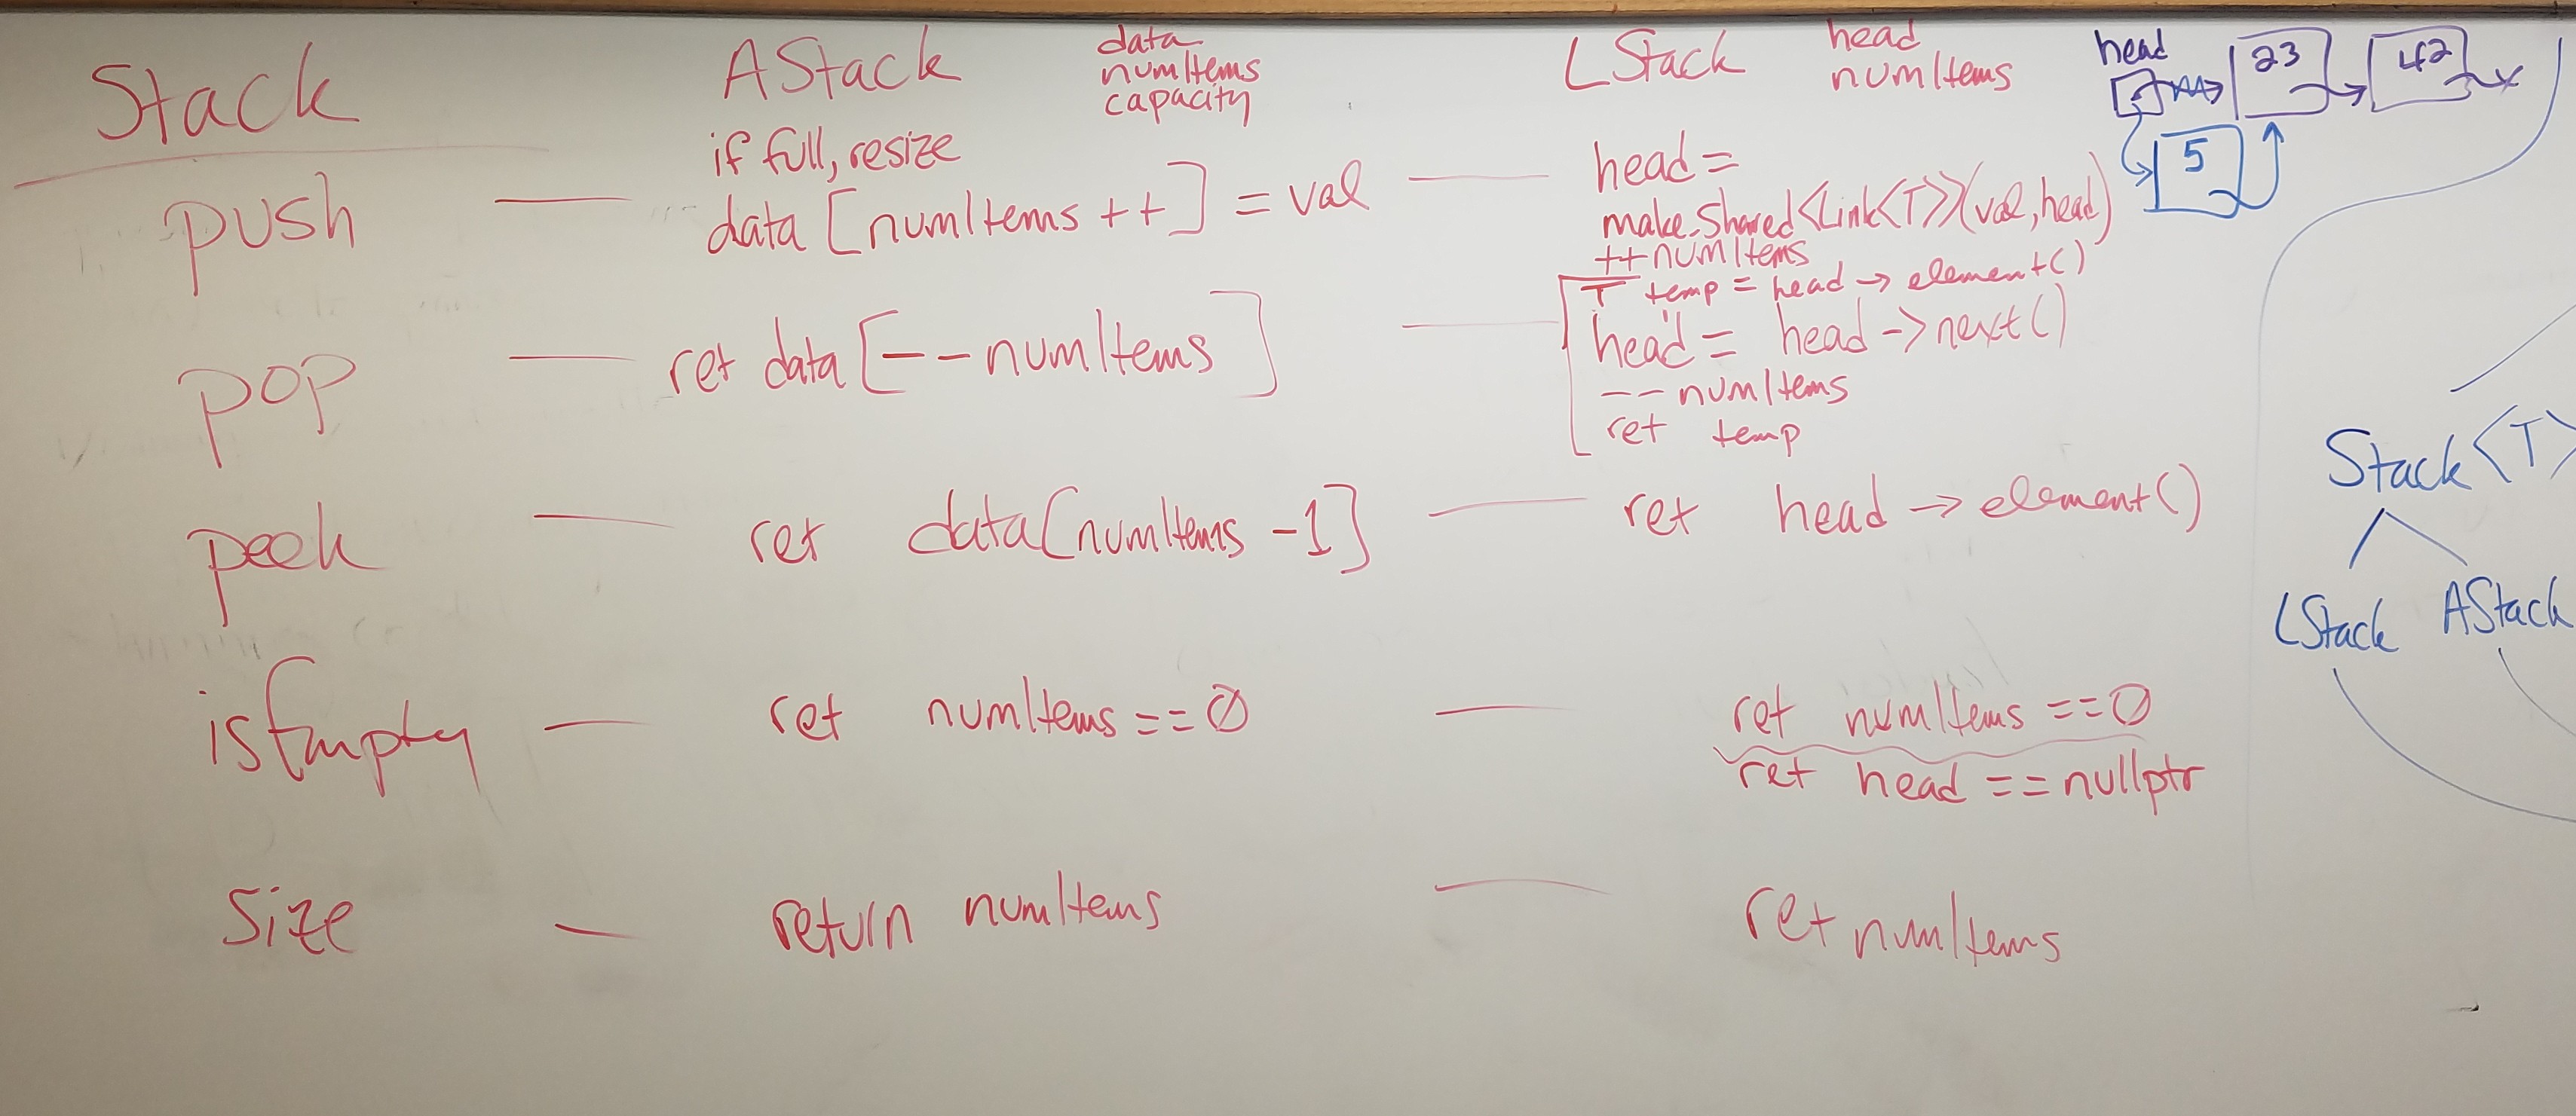 Stack
AStack
data
numItems
capacity
LStack
head
numItems
head
23
42
5
push
if full, resize
data [numItems ++] = val
head =
make_shared<Link<T>>(val, head)
++numItems
pop
ret data [--numItems]
T temp = head -> element()
head = head -> next()
-- numItems
ret temp
peek
ret data[numItems -1]
ret head -> element()
isEmpty
ret numItems == 0
ret numItems == 0
ret head == nullptr
size
return numItems
ret numItems
Stack<T>
LStack AStack